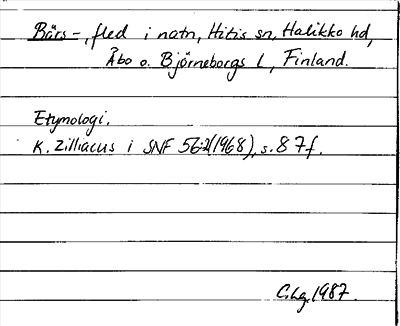 Bärs-, fled i natn, Hitis sn, Halikko hd,
Åbo o. Björneborgs l, Finland.
Etymologi.
K. Zilliacus i SNF 56:2(1968), s. 87f.
C.Lg. 1987.